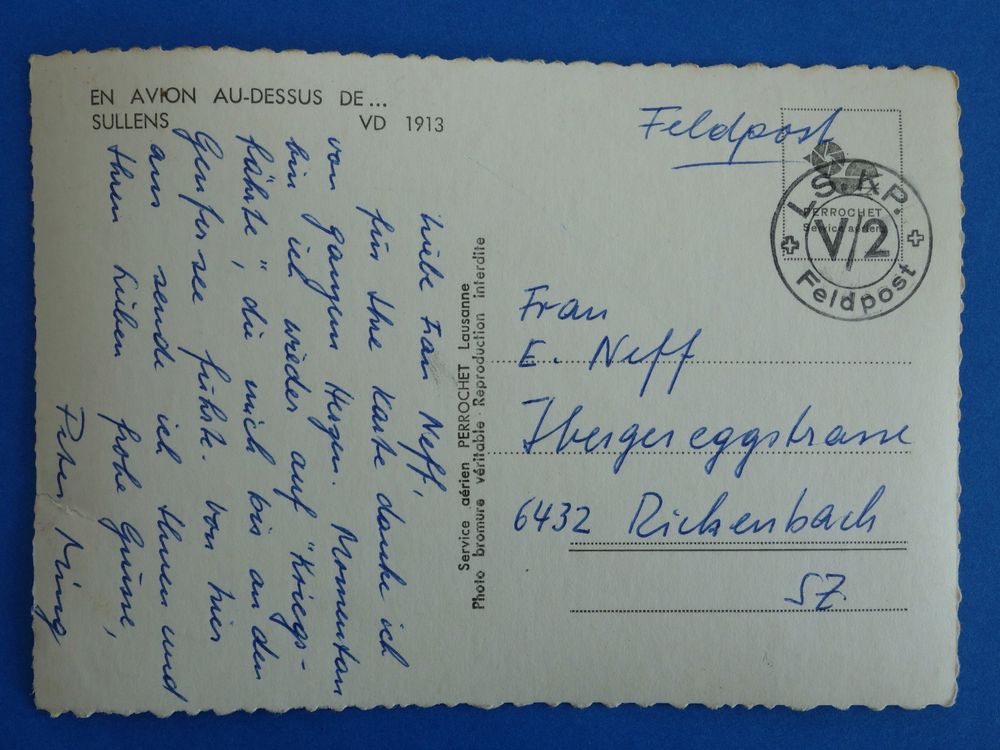 EN AVION AU-DESSUS DE...
SULLENS VD 1913
Liebe Frau Neff,
für Ihre Karte danke ich
von ganzem Herzen. Momentan
bin ich wieder auf "Kriegs-
fährte", die mich bis an den
Genfersee führte. Von hier
aus sende ich Ihnen und
Ihren Lieben frohe Grüsse,
Peter Ming
Service aérien PERROCHET Lausanne
Photo bromure véritable · Reproduction interdite
Feldpost
PERROCHET
Service aérien
LS. KP.
V/2
Feldpost
Frau
E. Neff
Ibergereggstrasse
6432 Rickenbach
SZ